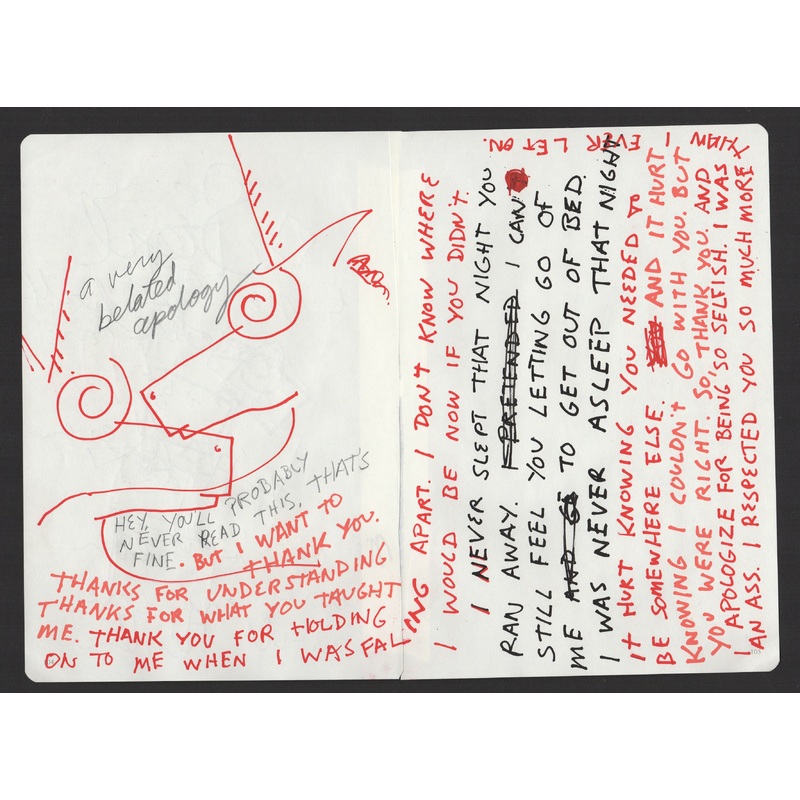 a very
belated
apology
HEY, YOU'LL PROBABLY
NEVER READ THIS, THAT'S
FINE. BUT I WANT TO
THANK YOU.
THANKS FOR UNDERSTANDING
THANKS FOR WHAT YOU TAUGHT
ME. THANK YOU FOR HOLDING
ON TO ME WHEN I WAS FAL
ING APART. I DON'T KNOW WHERE
I WOULD BE NOW IF YOU DIDN'T.
I NEVER SLEPT THAT NIGHT YOU
RAN AWAY. I PRETENDED I CAN
STILL FEEL YOU LETTING GO OF
ME AND GO TO GET OUT OF BED.
I WAS NEVER ASLEEP THAT NIGHT
IT HURT KNOWING YOU NEEDED TO
BE SOMEWHERE ELSE. AND IT HURT
KNOWING I COULDN'T GO WITH YOU. BUT
YOU WERE RIGHT. SO, THANK YOU. AND
I APOLOGIZE FOR BEING SO SELFISH. I WAS
AN ASS. I RESPECTED YOU SO MUCH MORE
THAN I EVER LET ON.